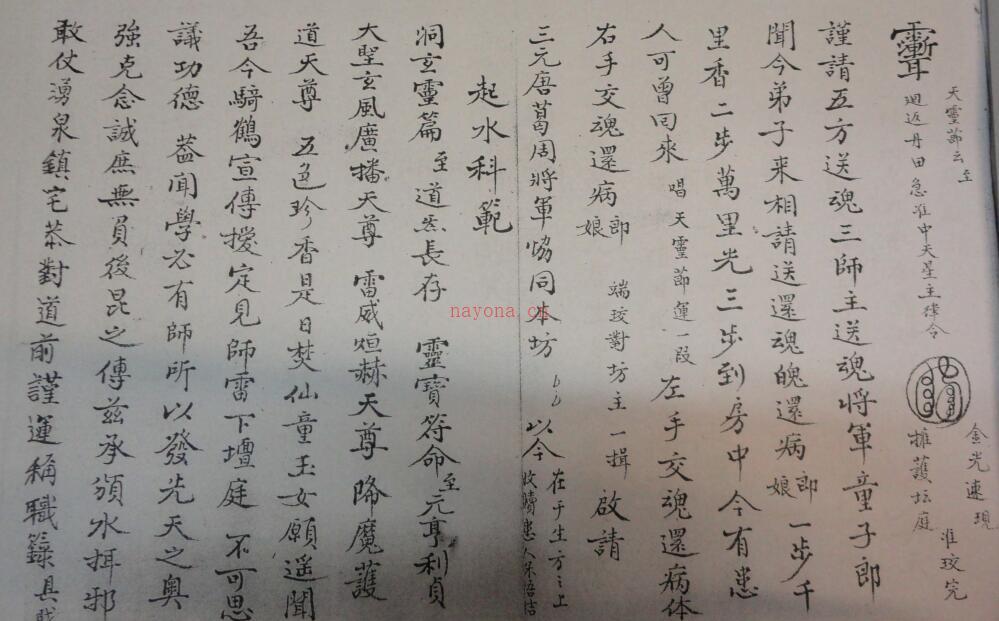 天靈節云至
迴返丹田急准中天星主律令
金光速現
擁護坛庭
准玟完
謹請五方送魂三師主送魂將軍童子郎
聞今弟子來相請送還魂魄還病郎娘一步千
里香二步萬里光三步到房中今有患
人可曾回來 唱天靈節運一段 左手交魂還病体
右手交魂還病郎娘 端玟對坊主一揖 啟請
三元唐葛周將軍協同本坊 以今 在于生方之上
收贖患人
起水科範
洞玄靈篇至道炁長存 靈寶符命至元亨利貞
大聖玄風廣播天尊 雷威烜赫天尊 降魔護
道天尊 五色珍香是日焚仙童玉女願遥聞
吾今騎鶴宣傳擾定見師雷下壇庭 不可思
議功德 蓋聞學必有師所以發先天之奥
強克念誠庶無負後昆之傳兹承頒水捐邪
敢仗湧泉鎮宅恭對道前謹運稱職籙具
nayona.cn